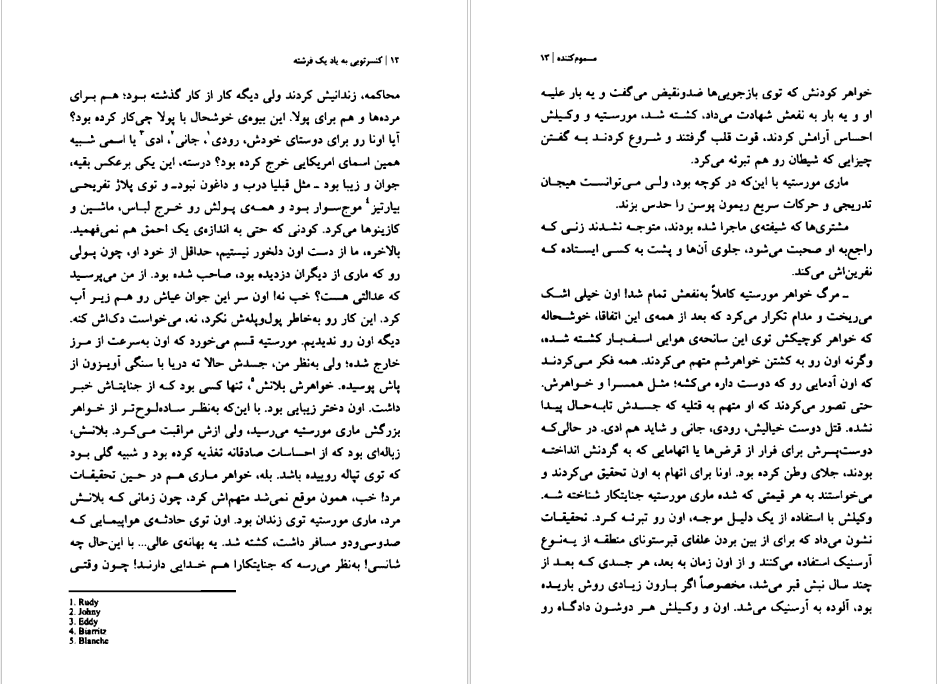 ۱۲ | کنسرتویی به یاد یک فرشته
محاکمه، زندانیش کردند ولی دیگه کار از کار گذشته بود؛ هم برای
مرده‌ها و هم برای پولا. این بیوه‌ی خوشحال با پولا چی‌کار کرده بود؟
آیا اونا رو برای دوستای خودش، رودی۱، جانی۲، ادی۳ یا اسمی شبیه
همین اسمای امریکایی خرج کرده بود؟ درسته، این یکی برعکس بقیه،
جوان و زیبا بود ـ مثل قبلیا درب و داغون نبود ـ و توی پلاژ تفریحی
بیارتیز۴ موج‌سوار بود و همه‌ی پولش رو خرج لباس، ماشین و
کازینوها می‌کرد. کودنی که حتی به اندازه‌ی یک احمق هم نمی‌فهمید.
بالاخره، ما از دست اون دلخور نیستیم، حداقل از خود او، چون پولی
رو که ماری از دیگران دزدیده بود، صاحب شده بود. از من می‌پرسید
که عدالتی هست؟ خب نه! اون سر این جوان عیاش رو هم زیر آب
کرد. این کار رو به‌خاطر پول‌وپله‌ش نکرد، نه، می‌خواست دک‌اش کنه.
دیگه اون رو ندیدیم. مورستیه قسم می‌خورد که اون به‌سرعت از مرز
خارج شده؛ ولی به‌نظر من، جسدش حالا ته دریا با سنگی آویزون از
پاش پوسیده. خواهرش بلانش۵، تنها کسی بود که از جنایتاش خبر
داشت. اون دختر زیبایی بود. با این‌که به‌نظر ساده‌لوح‌تر از خواهر
بزرگش ماری مورستیه می‌رسید، ولی ازش مراقبت می‌کرد. بلانش،
زباله‌ای بود که از احساسات صادقانه تغذیه کرده بود و شبیه گلی بود
که توی تپاله روییده باشد. بله، خواهر ماری هم در حین تحقیقات
مرد! خب، همون موقع نمی‌شد متهم‌اش کرد، چون زمانی که بلانش
مرد، ماری مورستیه توی زندان بود. اون توی حادثه‌ی هواپیمایی که
صدوسی‌ودو مسافر داشت، کشته شد. یه بهانه‌ی عالی... با این‌حال چه
شانسی! به‌نظر می‌رسه که جنایتکارا هم خدایی دارند! چون وقتی
1. Rudy
2. Johny
3. Eddy
4. Biarritz
5. Blanche
مسموم‌کننده | ۱۳
خواهر کودنش که توی بازجویی‌ها ضدونقیض می‌گفت و یه بار علیه
او و یه بار به نفعش شهادت می‌داد، کشته شد، مورستیه و وکیلش
احساس آرامش کردند، قوت قلب گرفتند و شروع کردند به گفتن
چیزایی که شیطان رو هم تبرئه می‌کرد.
ماری مورستیه با این‌که در کوچه بود، ولی می‌توانست هیجان
تدریجی و حرکات سریع ریمون پوسن را حدس بزند.
مشتری‌ها که شیفته‌ی ماجرا شده بودند، متوجه نشدند زنی که
راجع‌به او صحبت می‌شود، جلوی آن‌ها و پشت به کسی ایستاده که
نفرین‌اش می‌کند.
ـ مرگ خواهر مورستیه کاملاً به‌نفعش تمام شد! اون خیلی اشک
می‌ریخت و مدام تکرار می‌کرد که بعد از همه‌ی این اتفاقا، خوشحاله
که خواهر کوچیکش توی این سانحه‌ی هوایی اسف‌بار کشته شده،
وگرنه اون رو به کشتن خواهرشم متهم می‌کردند. همه فکر می‌کردند
که اون آدمایی رو که دوست داره می‌کشه؛ مثل همسرا و خواهرش.
حتی تصور می‌کردند که او متهم به قتلیه که جسدش تابه‌حال پیدا
نشده. قتل دوست خیالیش، رودی، جانی و شاید هم ادی. در حالی‌که
دوست‌پسرش برای فرار از قرض‌ها یا اتهامایی که به گردنش انداخته
بودند، جلای وطن کرده بود. اونا برای اتهام به اون تحقیق می‌کردند و
می‌خواستند به هر قیمتی که شده ماری مورستیه جنایتکار شناخته شه.
وکیلش با استفاده از یک دلیل موجه، اون رو تبرئه کرد. تحقیقات
نشون می‌داد که برای از بین بردن علفای قبرستونای منطقه از یه‌نوع
آرسنیک استفاده می‌کنند و از اون زمان به بعد، هر جسدی که بعد از
چند سال نبش قبر می‌شد، مخصوصاً اگر بارون زیادی روش باریده
بود، آلوده به آرسنیک می‌شد. اون و وکیلش هر دوشون دادگاه رو